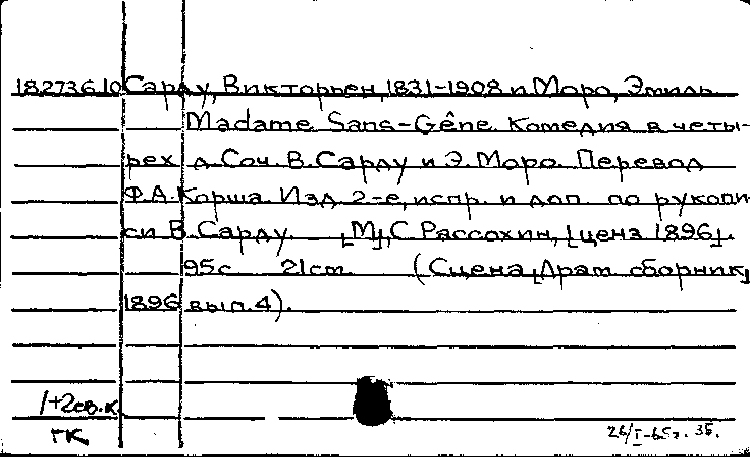 18273610 Сарду, Викторьен, 1831-1908 и Моро, Эмиль
Madame Sans-Gêne. Комедия в четы-
рех д. Соч. В. Сарду и Э. Моро. Перевод
Ф.А. Корша. Изд. 2-е, испр. и доп. по рукопи-
си В. Сарду. [М], С. Рассохин, [ценз 1896].
95с. 21см. (Сцена [Драм. сборник]
1896 вып. 4).
1+2св.к
ГК
26/I-65г. 35.